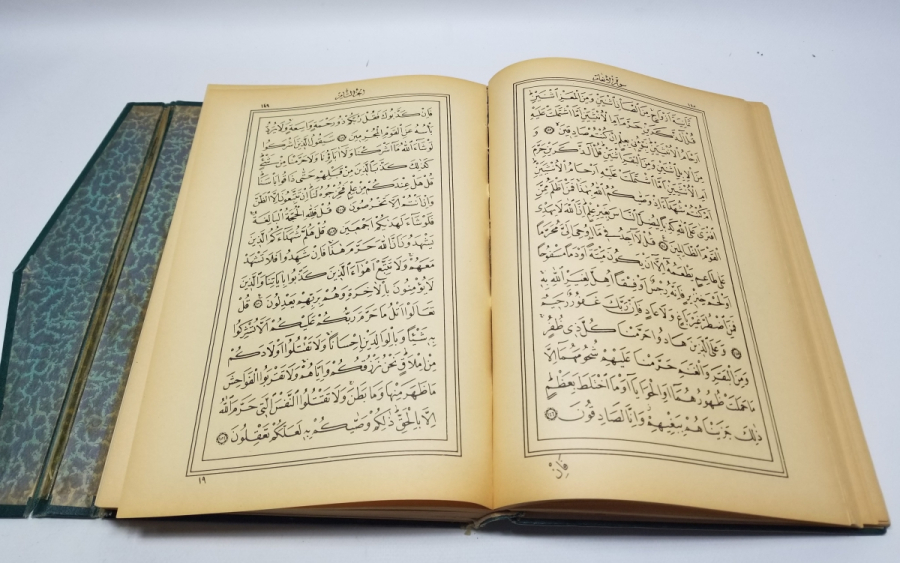 سورة الانعام
ثَمَانِيَةَ اَزْوَاجٍ مِنَ الضَّأْنِ اثْنَيْنِ وَمِنَ الْمَعْزِ اثْنَيْنِ
قُلْ آٰلذَّكَرَيْنِ حَرَّمَ اَمِ الْاُنْثَيَيْنِ اَمَّا اشْتَمَلَتْ عَلَيْهِ
اَرْحَامُ الْاُنْثَيَيْنِ نَبِّؤُنِي بِعِلْمٍ اِنْ كُنْتُمْ صَادِقِينَ ١٤٣ وَ
مِنَ الْاِبِلِ اثْنَيْنِ وَمِنَ الْبَقَرِ اثْنَيْنِ قُلْ آٰلذَّكَرَيْنِ حَرَّمَ
اَمِ الْاُنْثَيَيْنِ اَمَّا اشْتَمَلَتْ عَلَيْهِ اَرْحَامُ الْاُنْثَيَيْنِ
اَمْ كُنْتُمْ شُهَدَاءَ اِذْ وَصّٰيكُمُ اللهُ بِهٰذَا فَمَنْ اَظْلَمُ مِمَّنِ
افْتَرٰى عَلَى اللهِ كَذِبًا لِيُضِلَّ النَّاسَ بِغَيْرِ عِلْمٍ اِنَّ اللهَ لَا يَهْدِي
الْقَوْمَ الظَّالِمِينَ ١٤٤ قُلْ لَا اَجِدُ فِي مَا اُوحِيَ اِلَيَّ مُحَرَّمًا
عَلٰى طَاعِمٍ يَطْعَمُهُ اِلَّا اَنْ يَكُونَ مَيْتَةً اَوْ دَمًا مَسْفُوحًا
اَوْ لَحْمَ خِنْزِيرٍ فَاِنَّهُ رِجْسٌ اَوْ فِسْقًا اُهِلَّ لِغَيْرِ اللهِ بِهِ
فَمَنِ اضْطُرَّ غَيْرَ بَاغٍ وَلَا عَادٍ فَاِنَّ رَبَّكَ غَفُورٌ رَحِيمٌ
١٤٥ وَعَلَى الَّذِينَ هَادُوا حَرَّمْنَا كُلَّ ذِي ظُفُرٍ
وَمِنَ الْبَقَرِ وَالْغَنَمِ حَرَّمْنَا عَلَيْهِمْ شُحُومَهُمَا اِلَّا
مَا حَمَلَتْ ظُهُورُهُمَا اَوِ الْحَوَايَا اَوْ مَا اخْتَلَطَ بِعَظْمٍ
ذٰلِكَ جَزَيْنَاهُمْ بِبَغْيِهِمْ وَاِنَّا لَصَادِقُونَ ١٤٦
فَاِنْ
الجزء الثامن
١٤٩
فَاِنْ كَذَّبُوكَ فَقُلْ رَبُّكُمْ ذُو رَحْمَةٍ وَاسِعَةٍ وَلَا يُرَدُّ
بَأْسُهُ عَنِ الْقَوْمِ الْمُجْرِمِينَ ١٤٧ سَيَقُولُ الَّذِينَ اَشْرَكُوا
لَوْ شَاءَ اللهُ مَا اَشْرَكْنَا وَلَا اٰبَاؤُنَا وَلَا حَرَّمْنَا مِنْ شَيْءٍ
كَذٰلِكَ كَذَّبَ الَّذِينَ مِنْ قَبْلِهِمْ حَتّٰى ذَاقُوا بَأْسَنَا
قُلْ هَلْ عِنْدَكُمْ مِنْ عِلْمٍ فَتُخْرِجُوهُ لَنَا اِنْ تَتَّبِعُونَ اِلَّا الظَّنَّ
وَاِنْ اَنْتُمْ اِلَّا تَخْرُصُونَ ١٤٨ قُلْ فَلِلّٰهِ الْحُجَّةُ الْبَالِغَةُ
فَلَوْ شَاءَ لَهَدٰيكُمْ اَجْمَعِينَ ١٤٩ قُلْ هَلُمَّ شُهَدَاءَكُمُ الَّذِينَ
يَشْهَدُونَ اَنَّ اللهَ حَرَّمَ هٰذَا فَاِنْ شَهِدُوا فَلَا تَشْهَدْ
مَعَهُمْ وَلَا تَتَّبِعْ اَهْوَاءَ الَّذِينَ كَذَّبُوا بِاٰيَاتِنَا وَالَّذِينَ
لَا يُؤْمِنُونَ بِالْاٰخِرَةِ وَهُمْ بِرَبِّهِمْ يَعْدِلُونَ ١٥٠ قُلْ
تَعَالَوْا اَتْلُ مَا حَرَّمَ رَبُّكُمْ عَلَيْكُمْ اَلَّا تُشْرِكُوا
بِهِ شَيْئًا وَبِالْوَالِدَيْنِ اِحْسَانًا وَلَا تَقْتُلُوا اَوْلَادَكُمْ
مِنْ اِمْلَاقٍ نَحْنُ نَرْزُقُكُمْ وَاِيَّاهُمْ وَلَا تَقْرَبُوا الْفَوَاحِشَ
مَا ظَهَرَ مِنْهَا وَمَا بَطَنَ وَلَا تَقْتُلُوا النَّفْسَ الَّتِي حَرَّمَ اللهُ
اِلَّا بِالْحَقِّ ذٰلِكُمْ وَصّٰيكُمْ بِهِ لَعَلَّكُمْ تَعْقِلُونَ ١٥١
١٩